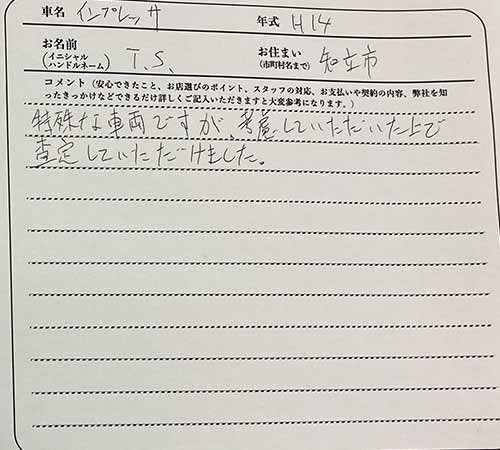 車名 インプレッサ 年式 H14
お名前 (イニシャル ハンドルネーム) T.S. お住まい (市町村名まで) 知立市
コメント (安心できたこと、お店選びのポイント、スタッフの対応、お支払いや契約の内容、弊社を知
ったきっかけなどできるだけ詳しくご記入いただきますと大変参考になります。)
特殊な車両ですが、考慮していただいた上で
査定していただけました。